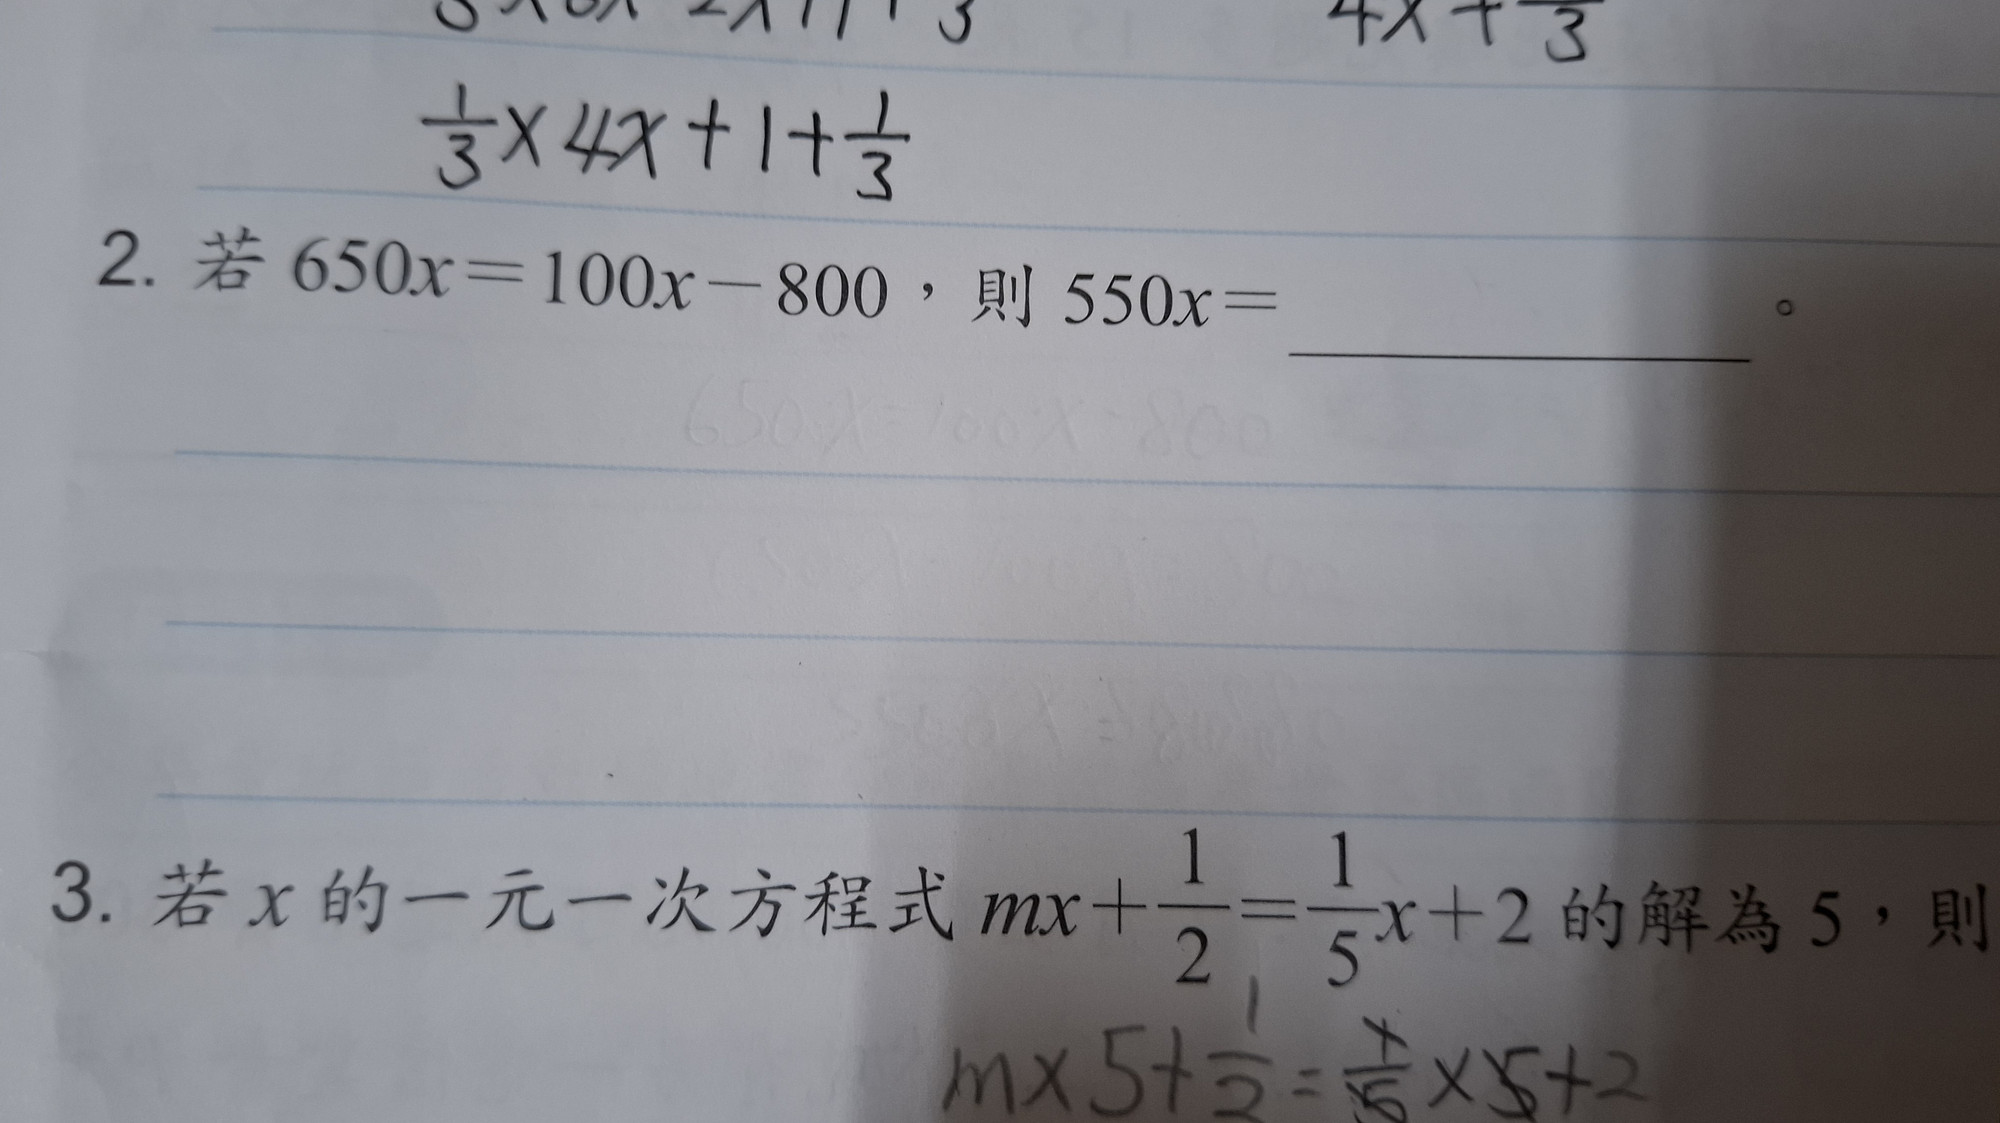 4x + 3
1/3 x 4x + 1 + 1/3
2. 若 650x=100x-800，則 550x=________。
650x=100x-800
3. 若 x 的一元一次方程式 mx+1/2=1/5x+2 的解為 5，則
mx5+1/2=1/5x5+2